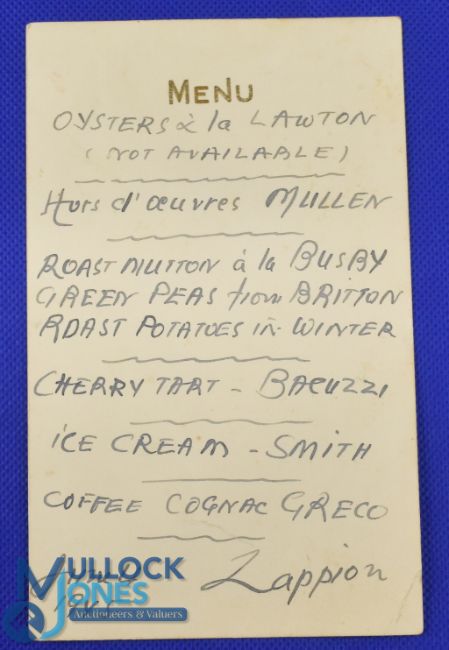 MENU
OYSTERS à la LAWTON
(NOT AVAILABLE)
Hors d'œuvres MULLEN
ROAST MUTTON à la BUSBY
GREEN PEAS from BRITTON
ROAST POTATOES in WINTER
CHERRY TART - BACUZZI
ICE CREAM - SMITH
COFFEE COGNAC GRECO
Lappion
MULLOCK
JONES
Auctioneers & Valuers